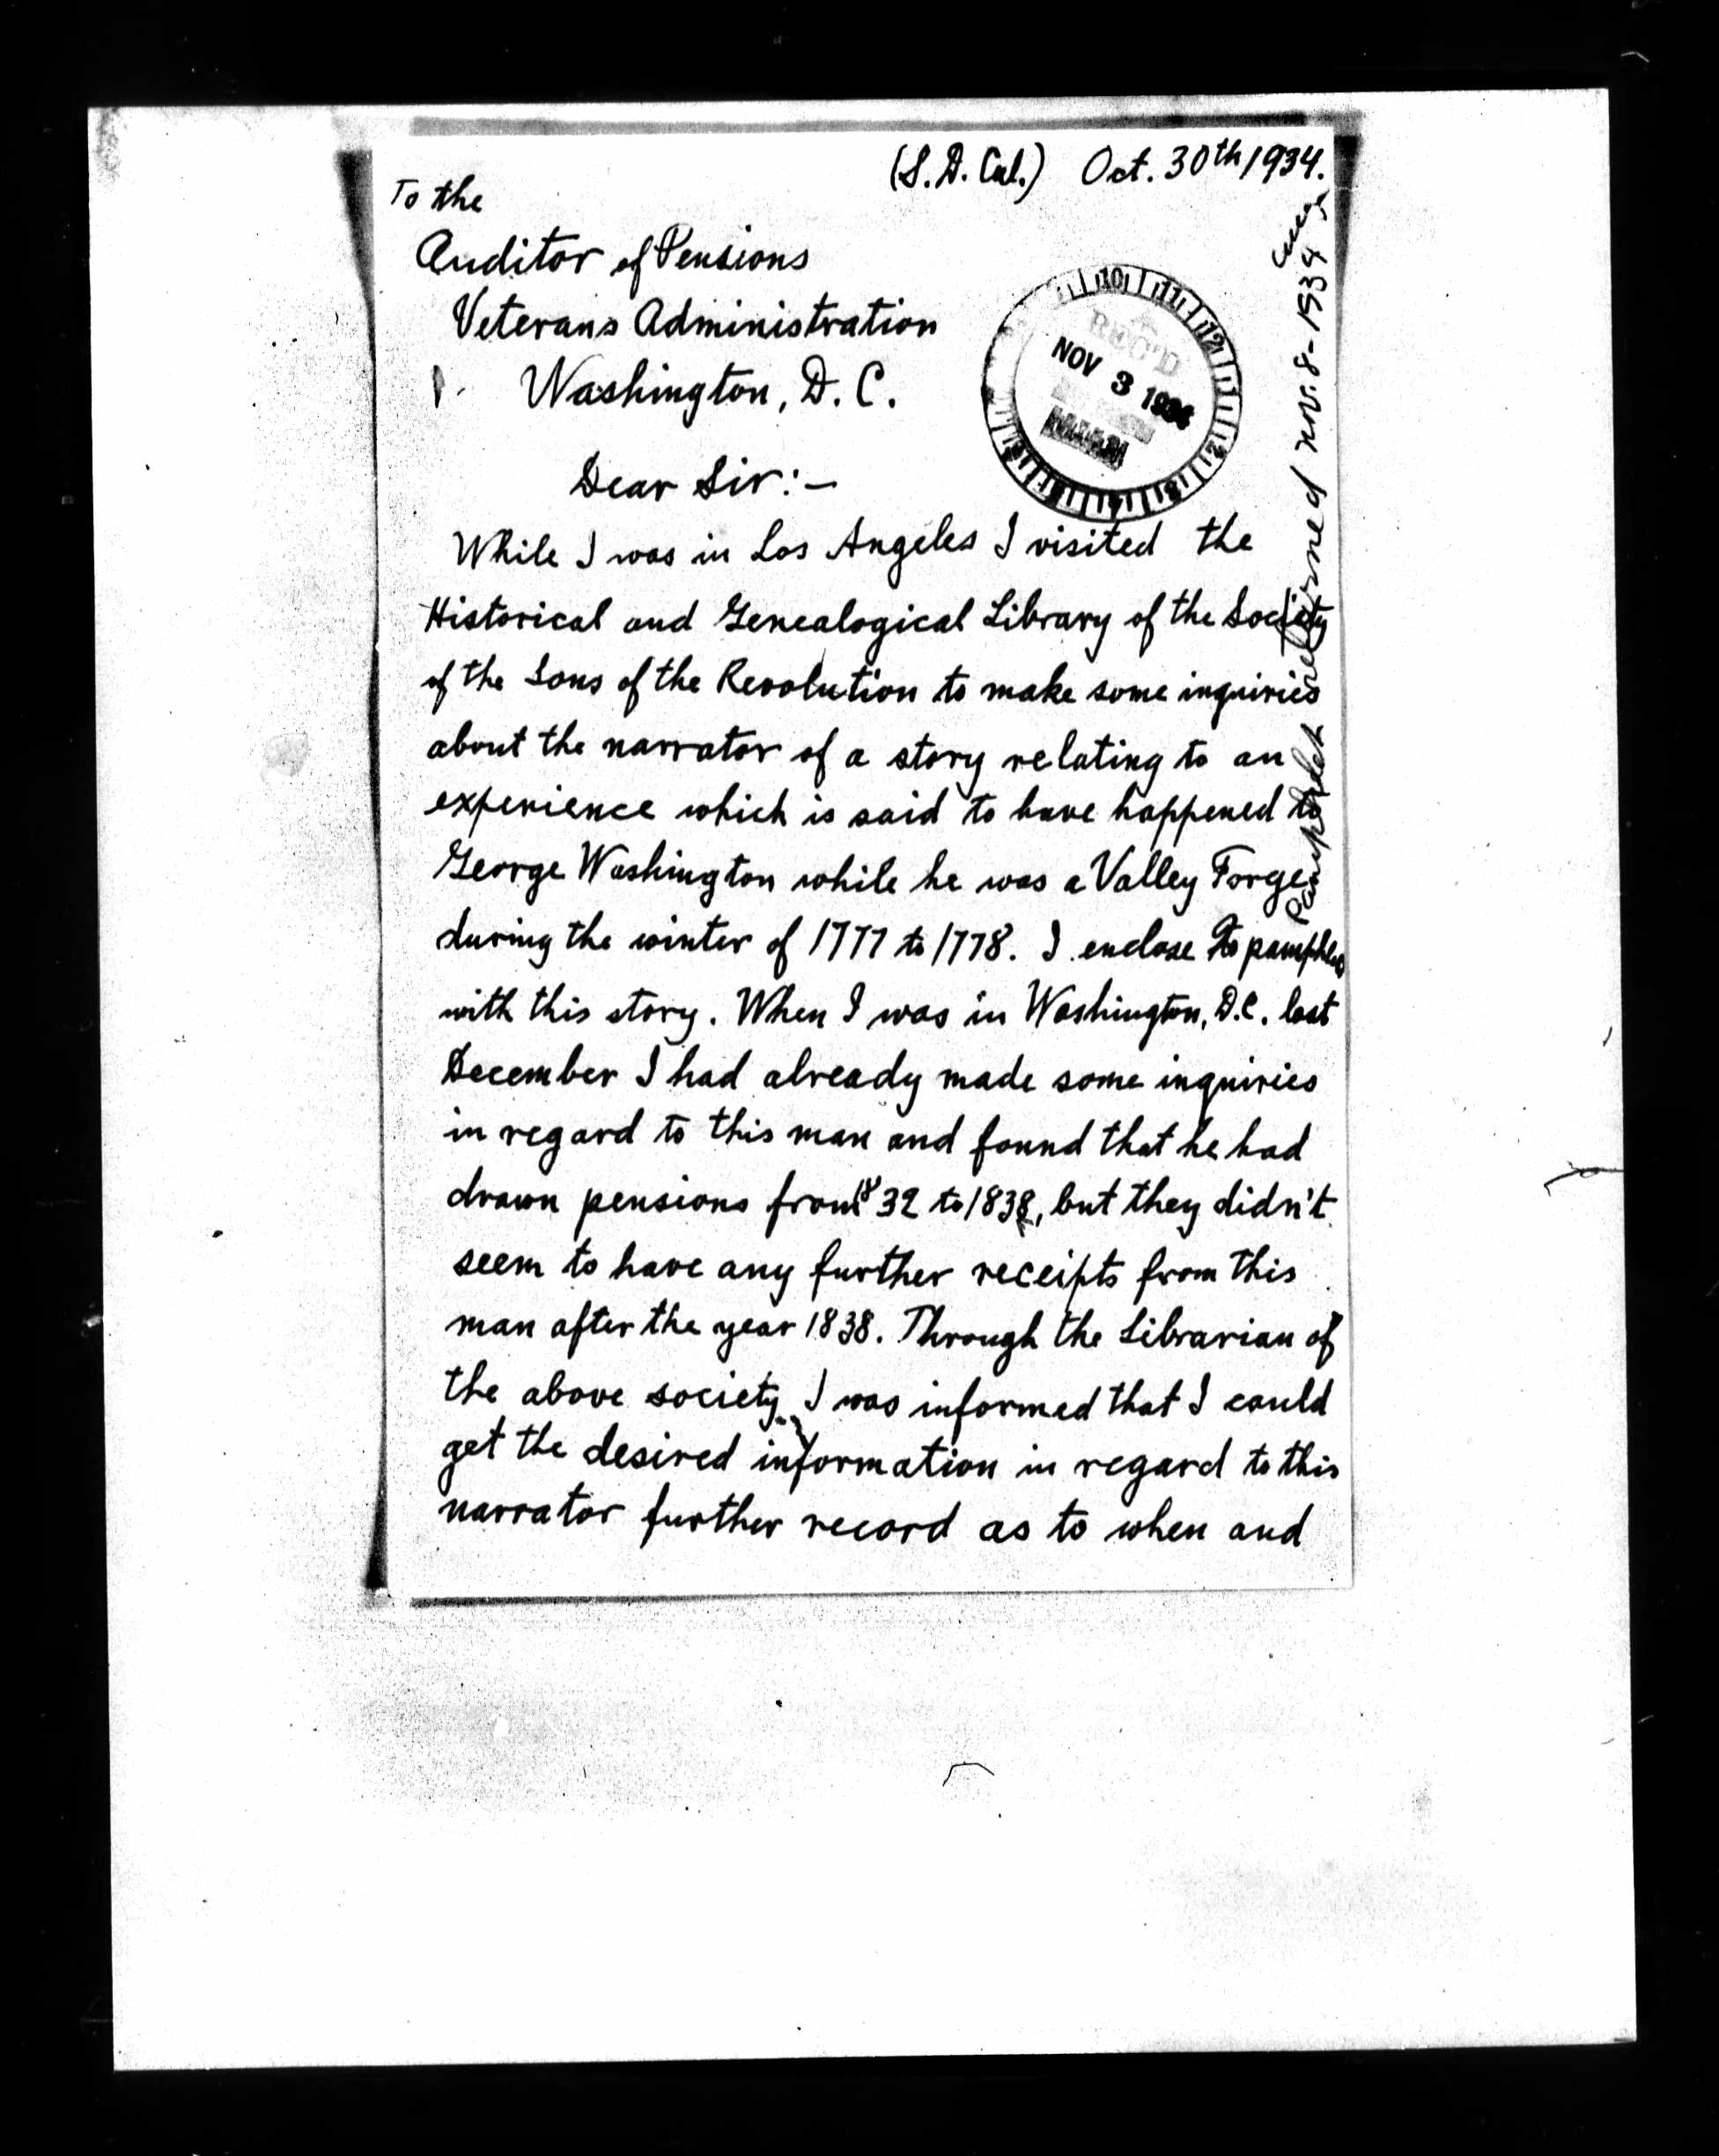 (S. D. Cal.) Oct. 30th 1934.
To the
Auditor of Pensions
Veterans Administration
Washington, D. C.
REC'D
NOV 3 1934
Dear Sir:—
While I was in Los Angeles I visited the
Historical and Genealogical Library of the Society
of the Sons of the Revolution to make some inquiries
about the narrator of a story relating to an
experience which is said to have happened to
George Washington while he was a Valley Forge
during the winter of 1777 to 1778. I enclose pamphlet
with this story. When I was in Washington, D.C. last
December I had already made some inquiries
in regard to this man and found that he had
drawn pensions from 1832 to 1838, but they didn't
seem to have any further receipts from this
man after the year 1838. Through the Librarian of
the above society I was informed that I could
get the desired information in regard to this
narrator further record as to when and
Pamphlet returned Nov. 8-1934